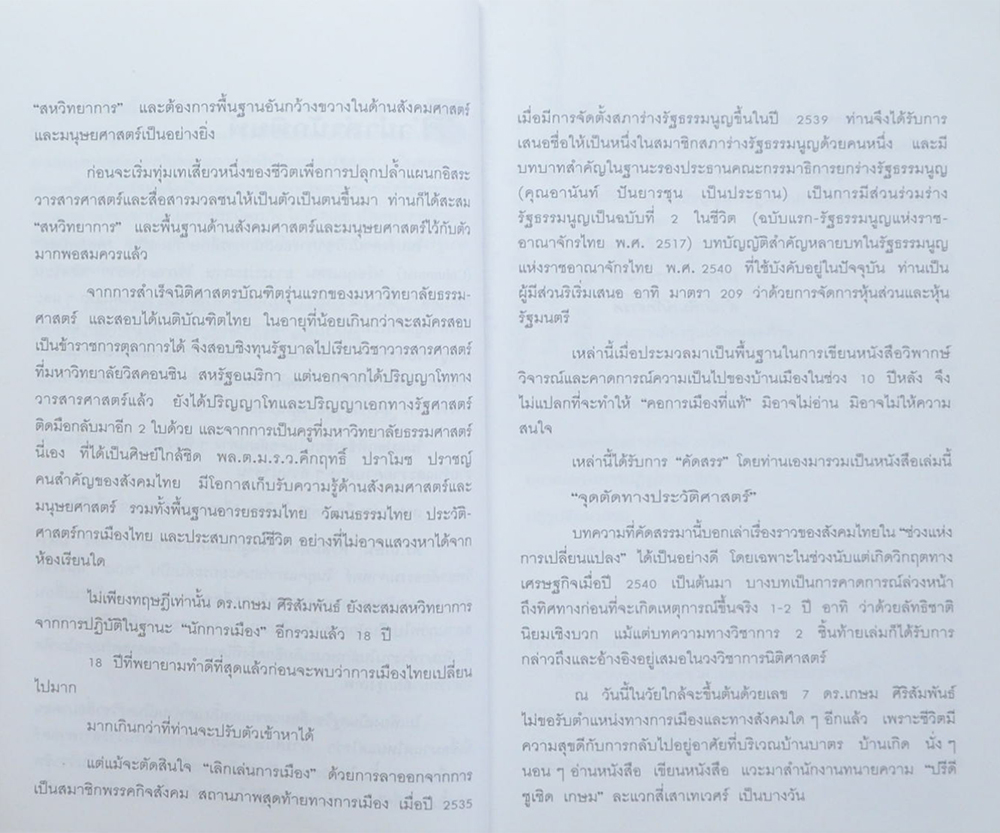 “สหวิทยาการ” และต้องการพื้นฐานอันกว้างขวางในด้านสังคมศาสตร์
และมนุษยศาสตร์เป็นอย่างยิ่ง
ก่อนจะเริ่มทุ่มเทเสี้ยวหนึ่งของชีวิตเพื่อการปลุกปล้ำแผนกอิสระ
วารสารศาสตร์และสื่อสารมวลชนให้เป็นตัวเป็นตนขึ้นมา ท่านก็ได้สะสม
“สหวิทยาการ” และพื้นฐานด้านสังคมศาสตร์และมนุษยศาสตร์ไว้กับตัว
มากพอสมควรแล้ว
จากการสำเร็จนิติศาสตรบัณฑิตรุ่นแรกของมหาวิทยาลัยธรรม-
ศาสตร์ และสอบได้เนติบัณฑิตไทย ในอายุที่น้อยเกินกว่าจะสมัครสอบ
เป็นข้าราชการตุลาการได้ จึงสอบชิงทุนรัฐบาลไปเรียนวิชาวารสารศาสตร์
ที่มหาวิทยาลัยวิสคอนซิน สหรัฐอเมริกา แต่นอกจากได้ปริญญาโททาง
วารสารศาสตร์แล้ว ยังได้ปริญญาโทและปริญญาเอกทางรัฐศาสตร์
ติดมือกลับมาอีก 2 ใบด้วย และจากการเป็นครูที่มหาวิทยาลัยธรรมศาสตร์
นี่เอง ที่ได้เป็นศิษย์ใกล้ชิด พล.ต.ม.ร.ว.คึกฤทธิ์ ปราโมช ปราชญ์
คนสำคัญของสังคมไทย มีโอกาสเก็บรับความรู้ด้านสังคมศาสตร์และ
มนุษยศาสตร์ รวมทั้งพื้นฐานอารยธรรมไทย วัฒนธรรมไทย ประวัติ-
ศาสตร์การเมืองไทย และประสบการณ์ชีวิต อย่างที่ไม่อาจแสวงหาได้จาก
ห้องเรียนใด
ไม่เพียงทฤษฎีเท่านั้น ดร.เกษม ศิริสัมพันธ์ ยังสะสมสหวิทยาการ
จากการปฏิบัติในฐานะ “นักการเมือง” อีกรวมแล้ว 18 ปี
18 ปีที่พยายามทำดีที่สุดแล้วก่อนจะพบว่าการเมืองไทยเปลี่ยน
ไปมาก
มากเกินกว่าที่ท่านจะปรับตัวเข้าหาได้
แต่แม้จะตัดสินใจ “เลิกเล่นการเมือง” ด้วยการลาออกจากการ
เป็นสมาชิกพรรคกิจสังคม สถานภาพสุดท้ายทางการเมือง เมื่อปี 2535
เมื่อมีการจัดตั้งสภาร่างรัฐธรรมนูญขึ้นในปี 2539 ท่านจึงได้รับการ
เสนอชื่อให้เป็นหนึ่งในสมาชิกสภาร่างรัฐธรรมนูญด้วยคนหนึ่ง และมี
บทบาทสำคัญในฐานะรองประธานคณะกรรมาธิการยกร่างรัฐธรรมนูญ
(คุณอานันท์ ปันยารชุน เป็นประธาน) เป็นการมีส่วนร่วมร่าง
รัฐธรรมนูญเป็นฉบับที่ 2 ในชีวิต (ฉบับแรก-รัฐธรรมนูญแห่งราช-
อาณาจักรไทย พ.ศ. 2517) บทบัญญัติสำคัญหลายบทในรัฐธรรมนูญ
แห่งราชอาณาจักรไทย พ.ศ. 2540 ที่ใช้บังคับอยู่ในปัจจุบัน ท่านเป็น
ผู้มีส่วนริเริ่มเสนอ อาทิ มาตรา 209 ว่าด้วยการจัดการหุ้นส่วนและหุ้น
รัฐมนตรี
เหล่านี้เมื่อประมวลมาเป็นพื้นฐานในการเขียนหนังสือวิพากษ์
วิจารณ์และคาดการณ์ความเป็นไปของบ้านเมืองในช่วง 10 ปีหลัง จึง
ไม่แปลกที่จะทำให้ “คอการเมืองที่แท้” มิอาจไม่อ่าน มิอาจไม่ให้ความ
สนใจ
เหล่านี้ได้รับการ “คัดสรร” โดยท่านเองมารวมเป็นหนังสือเล่มนี้
“จุดตัดทางประวัติศาสตร์”
บทความที่คัดสรรมานี้บอกเล่าเรื่องราวของสังคมไทยใน “ช่วงแห่ง
การเปลี่ยนแปลง” ได้เป็นอย่างดี โดยเฉพาะในช่วงนับแต่เกิดวิกฤตทาง
เศรษฐกิจเมื่อปี 2540 เป็นต้นมา บางบทเป็นการคาดการณ์ล่วงหน้า
ถึงทิศทางก่อนที่จะเกิดเหตุการณ์ขึ้นจริง 1-2 ปี อาทิ ว่าด้วยลัทธิชาติ
นิยมเชิงบวก แม้แต่บทความทางวิชาการ 2 ชิ้นท้ายเล่มก็ได้รับการ
กล่าวถึงและอ้างอิงอยู่เสมอในวงวิชาการนิติศาสตร์
ณ วันนี้ในวัยใกล้จะขึ้นต้นด้วยเลข 7 ดร.เกษม ศิริสัมพันธ์
ไม่ขอรับตำแหน่งทางการเมืองและทางสังคมใด ๆ อีกแล้ว เพราะชีวิตมี
ความสุขดีกับการกลับไปอยู่อาศัยที่บริเวณบ้านบาตร บ้านเกิด นั่ง ๆ
นอน ๆ อ่านหนังสือ เขียนหนังสือ แวะมาสำนักงานทนายความ “ปรีดี
ชูเชิด เกษม” ละแวกสี่เสาเทเวศร์ เป็นบางวัน